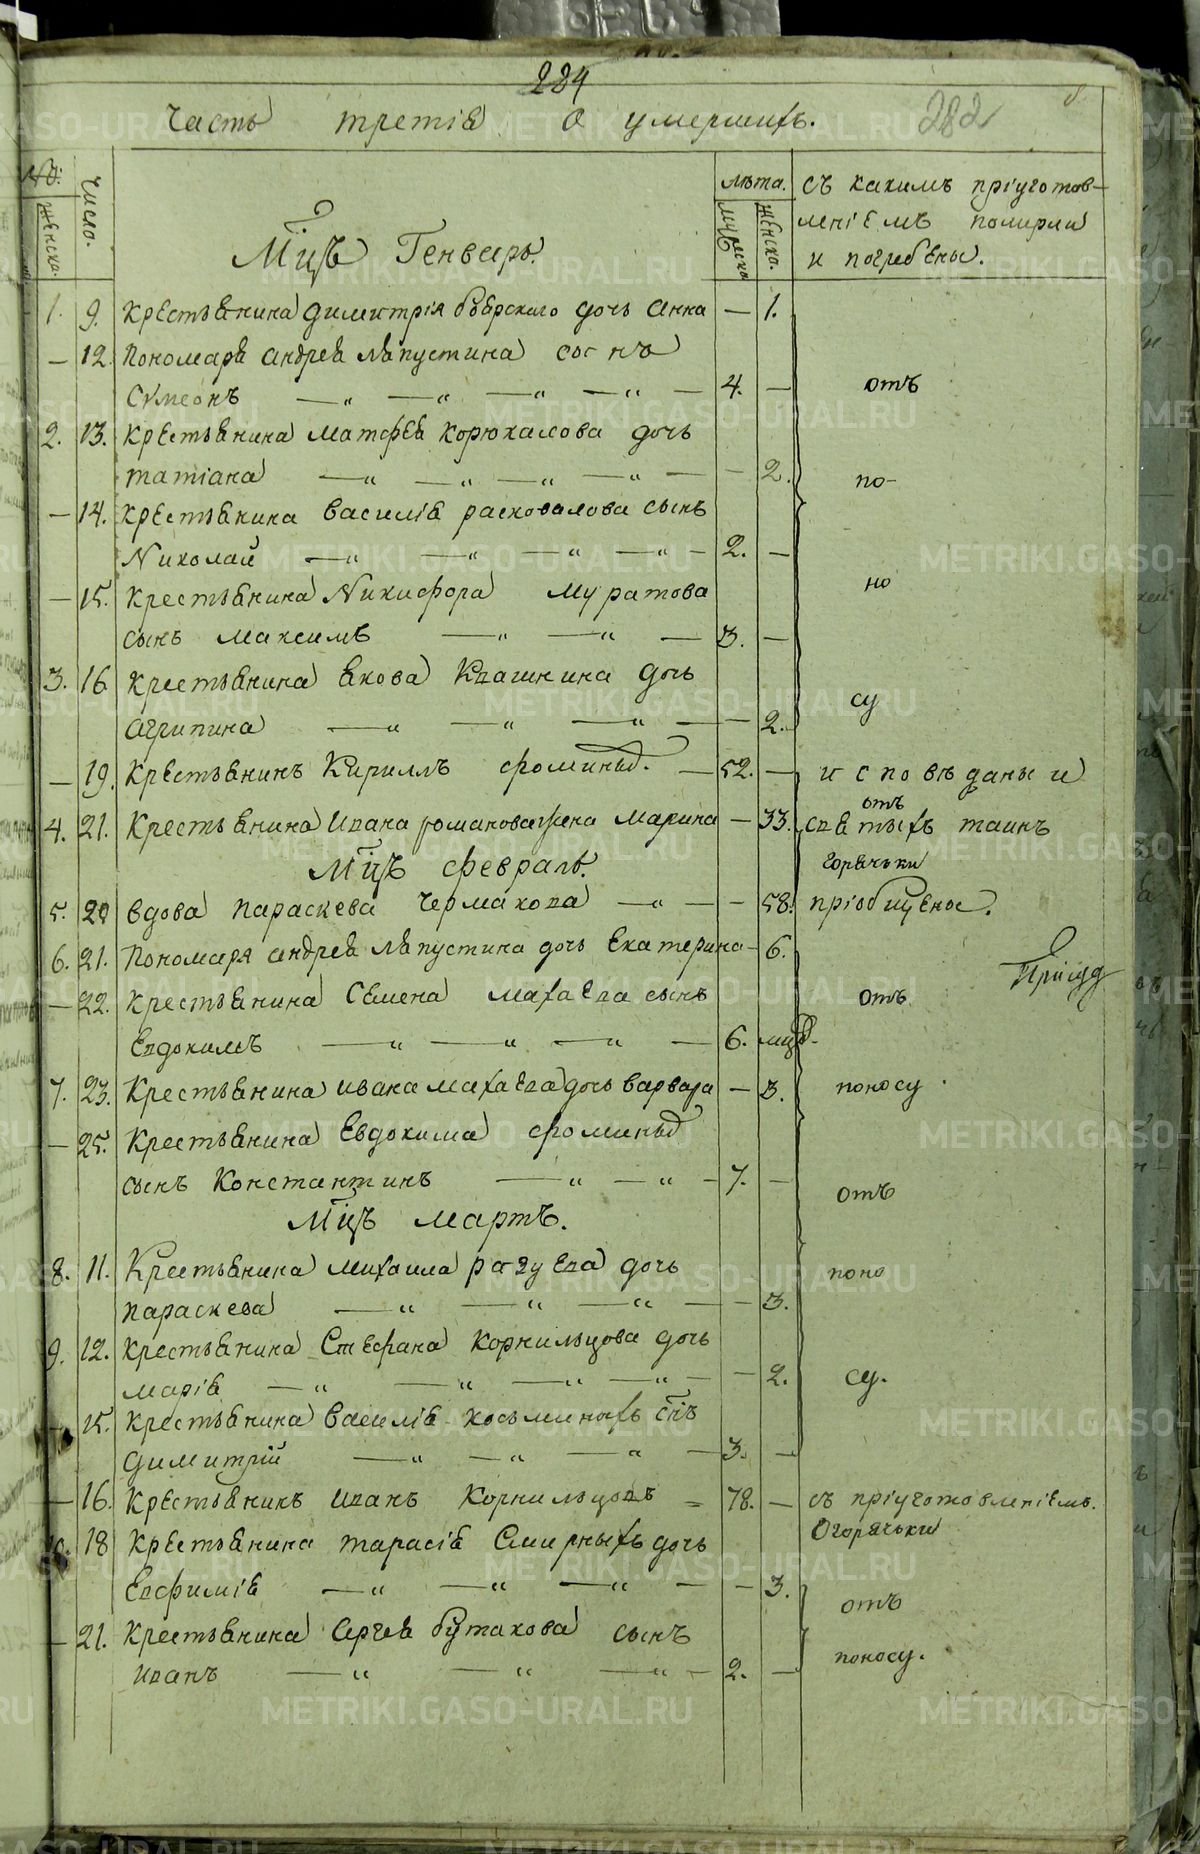 224
282
Часть третія О умершихъ.
№:
Женска.
Число.
лѣта.
мужеска
женска.
съ какимъ пріуготов-
леніемъ померли
и погребены.
Мцъ Генварь.
1. 9. Крестьянина Димитрія боярскаго дочь Анна — 1.
— 12. Пономаря андрея Ляпустина сынъ
Сѵмеонъ — „ — „ — „ — „ — 4. — отъ
2. 13. Крестьянина Матфея Корюкалова дочь
татіана — „ — „ — „ — „ — — 2. по-
— 14. крестьянина василія расковалова сынъ
Николай — „ — „ — „ — „ — 2. —
— 15. крестьянина Никифора Муратова но
сынъ Максимъ — „ — „ — 3. —
3. 16 крестьянина якова Квашнина дочь
агрипина — „ — „ — „ — — 2. су
— 19. Крестьянинъ Кириллъ фоминыхъ. — 52. — исповѣданы и
отъ
4. 21. Крестьянина Ивана романова жена Марина — 33. святыхъ таинъ
горячьки
Мцъ февраль.
5. 20 вдова Параскева Чермакова — „ — — 58. пріобщены.
6. 21. Пономаря андрея Ляпустина дочь Екатерина — 6.
— 22. Крестьянина Семена Махаева сынъ отъ
Евдокимъ — „ — „ — „ — 6. мцъ.
7. 23. Крестьянина ивана махаева дочь варвара — 3. поносу
— 25. Крестьянина Евдокима фоминыхъ
сынъ Константинъ — „ — „ — 7. — отъ
Мцъ Мартъ.
8. 11. Крестьянина михаила разуева дочь поно
параскева — „ — „ — „ — — 3.
9. 12. крестьянина Стефана Корнильцова дочь
марія — „ — „ — „ — „ — — 2. су.
15. крестьянина василія косьминыхъ снъ
Димитрій — „ — „ — „ — 3. —
— 16. Крестьянинъ Иванъ Корнильцовъ = 78. — съ пріуготовленіемъ.
Огорячьки
10. 18 Крестьянина тарасія Смирныхъ дочь
Евфимія — „ — „ — „ — — 3. отъ
— 21. Крестьянина Сергея бутакова сынъ
Иванъ — „ — „ — „ — 2. — поносу.